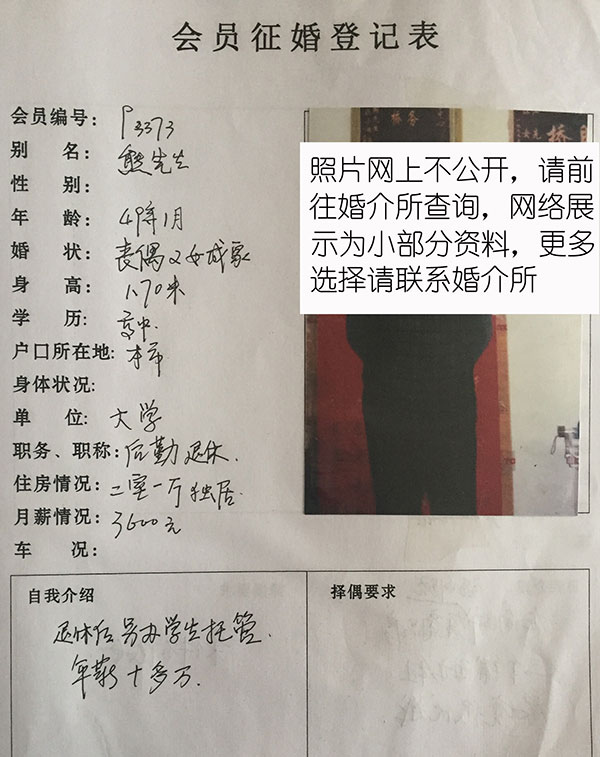 会员征婚登记表
会员编号: P3373
别 名: 熊先生
性 别:
年 龄: 49年1月
婚 状: 丧偶 2女成家
身 高: 1.70米
学 历: 高中
户口所在地: 本市
身体状况:
单 位: 大学
职务、职称: 后勤退休.
住房情况: 二室一厅 独居.
月薪情况: 3600元
车 况:
照片网上不公开，请前
往婚介所查询，网络展
示为小部分资料，更多
选择请联系婚介所
自我介绍
退休后另办学生托管.
年薪十多万.
择偶要求